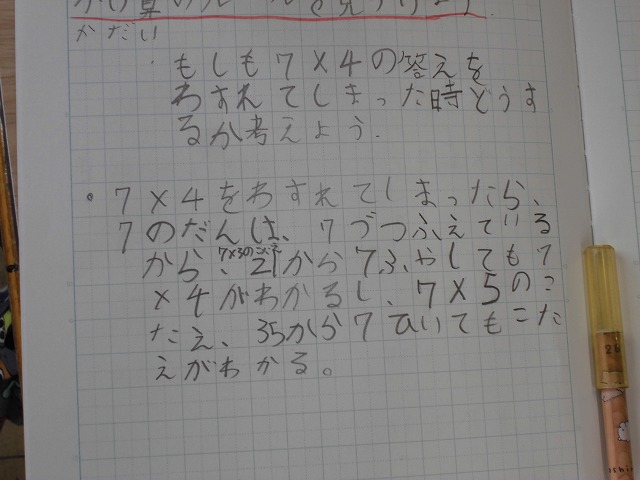 かけ算のルールを見つけよう.
かだい
もしも7×4の答えを
わすれてしまった時どうす
るか考えよう.
・7×4をわすれてしまったら、
7のだんは、7づつふえている
から、7×3のこたえ21から7ふやしても7
×4がわかるし、7×5のこ
たえ、35から7ひいてもこた
えがわかる。